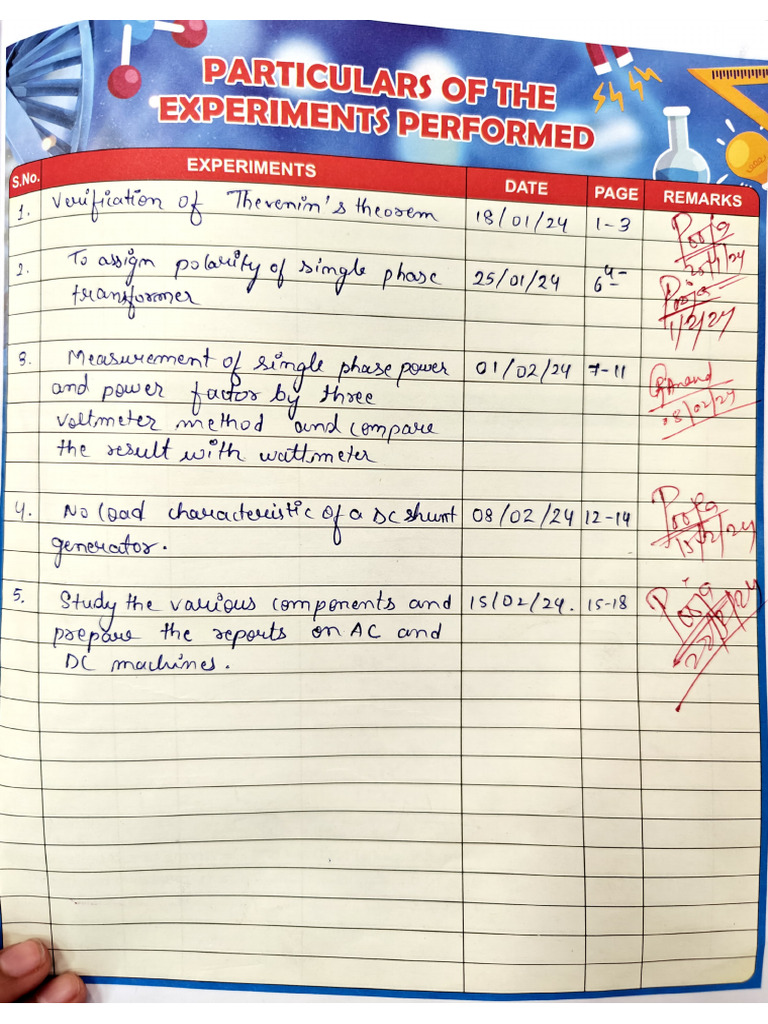 PARTICULARS OF THE
EXPERIMENTS PERFORMED
S.No. EXPERIMENTS DATE PAGE REMARKS
1. Verification of Thevenin's theorem 18/01/24 1-3 Pooja
2. To assign polarity of single phase 25/01/24 4-
transformer 6 Pooja
1/2/24
3. Measurement of single phase power 01/02/24 7-11 Anand
and power factor by three 08/02/24
voltmeter method and compare
the result with wattmeter
4. No load characteristic of a DC shunt 08/02/24 12-14 Pooja
generator. 15/2/24
5. Study the various components and 15/02/24. 15-18 Pooja
prepare the reports on AC and
DC machines.